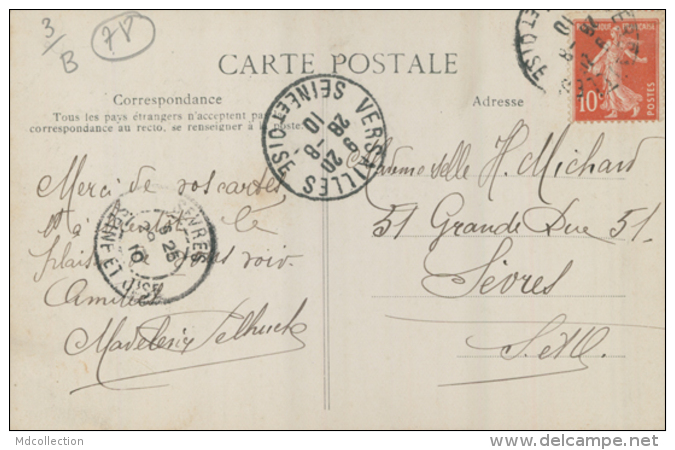 3/B
78
CARTE POSTALE
Correspondance
Tous les pays étrangers n'acceptent pas
correspondance au recto, se renseigner à la poste.
Adresse
VERSAILLES
SEINE ET OISE
9 20
28 -8
10
ET OISE
10
28 -8
10c
POSTES
Merci de vos cartes
et à le
plaisir vous voir.
Amitiés
Madeleine
SÈVRES
SEINE ET OISE
25
10
Mademoiselle H. Michard
51 Grande Rue 51.
Sèvres
S. et O.
Mdcollection
www.delcampe.net